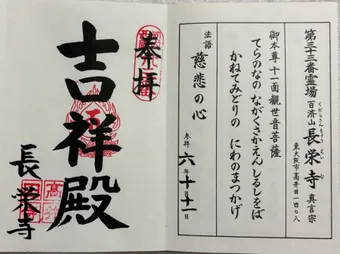 第三十三番霊場
百済山 長栄寺 真言宗
くだらさん ちょうえいじ
東大阪市高井田一四の八
御本尊 十一面観世音菩薩
てらのなの ながくさかえん しるしをば
かねてみどりの にわのまつかげ
法語 慈悲の心
参拝 六年十月十一日
奉拝
吉祥殿
長栄寺